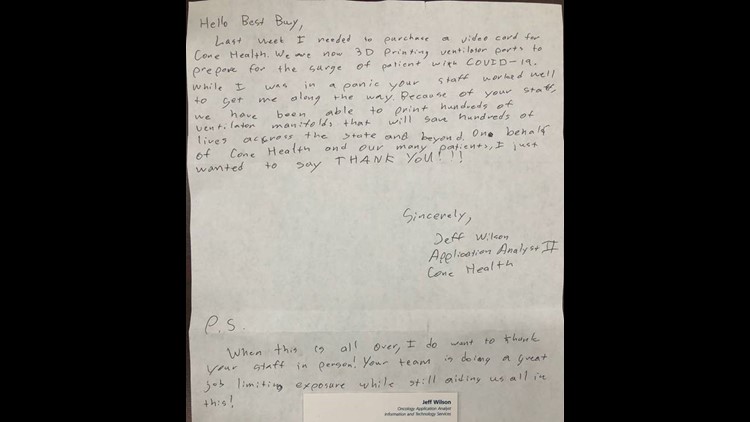 Hello Best Buy,
Last week I needed to purchase a video card for
Cone Health. We are now 3D printing ventilator parts to
prepare for the surge of patient with COVID-19.
While I was in a panic your staff worked well
to get me along the way. Because of your staff,
we have been able to print hundreds of
ventilator manifolds that will save hundreds of
lives accross the state and beyond. One behalf
of Cone Health and our many patients, I just
wanted to say THANK YOU!!!
Sincerely,
Jeff Wilson
Application Analyst II
Cone Health
P.S.
When this is all over, I do want to thank
your staff in person! Your team is doing a great
job limiting exposure while still aiding us all in
this!
Jeff Wilson
Oncology Application Analyst
Information and Technology Services